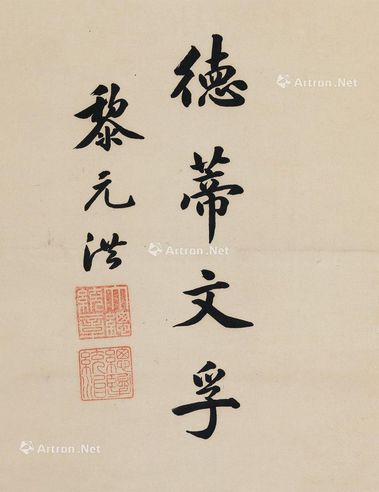 德蒂文孚
黎元洪
Artron.Net
Artron.Net
Artron.Net